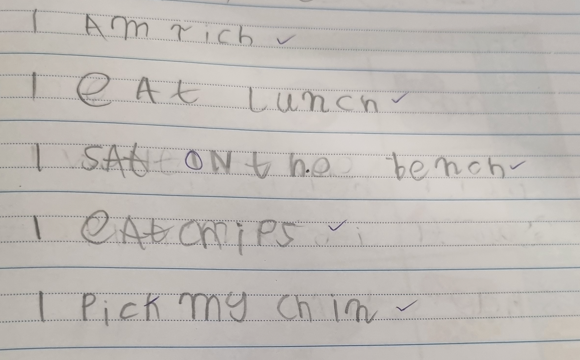 I Am rich ✓
I eAt Lunch ✓
I SAt ON the bench ✓
I eAt chips ✓
I Pick my chin ✓